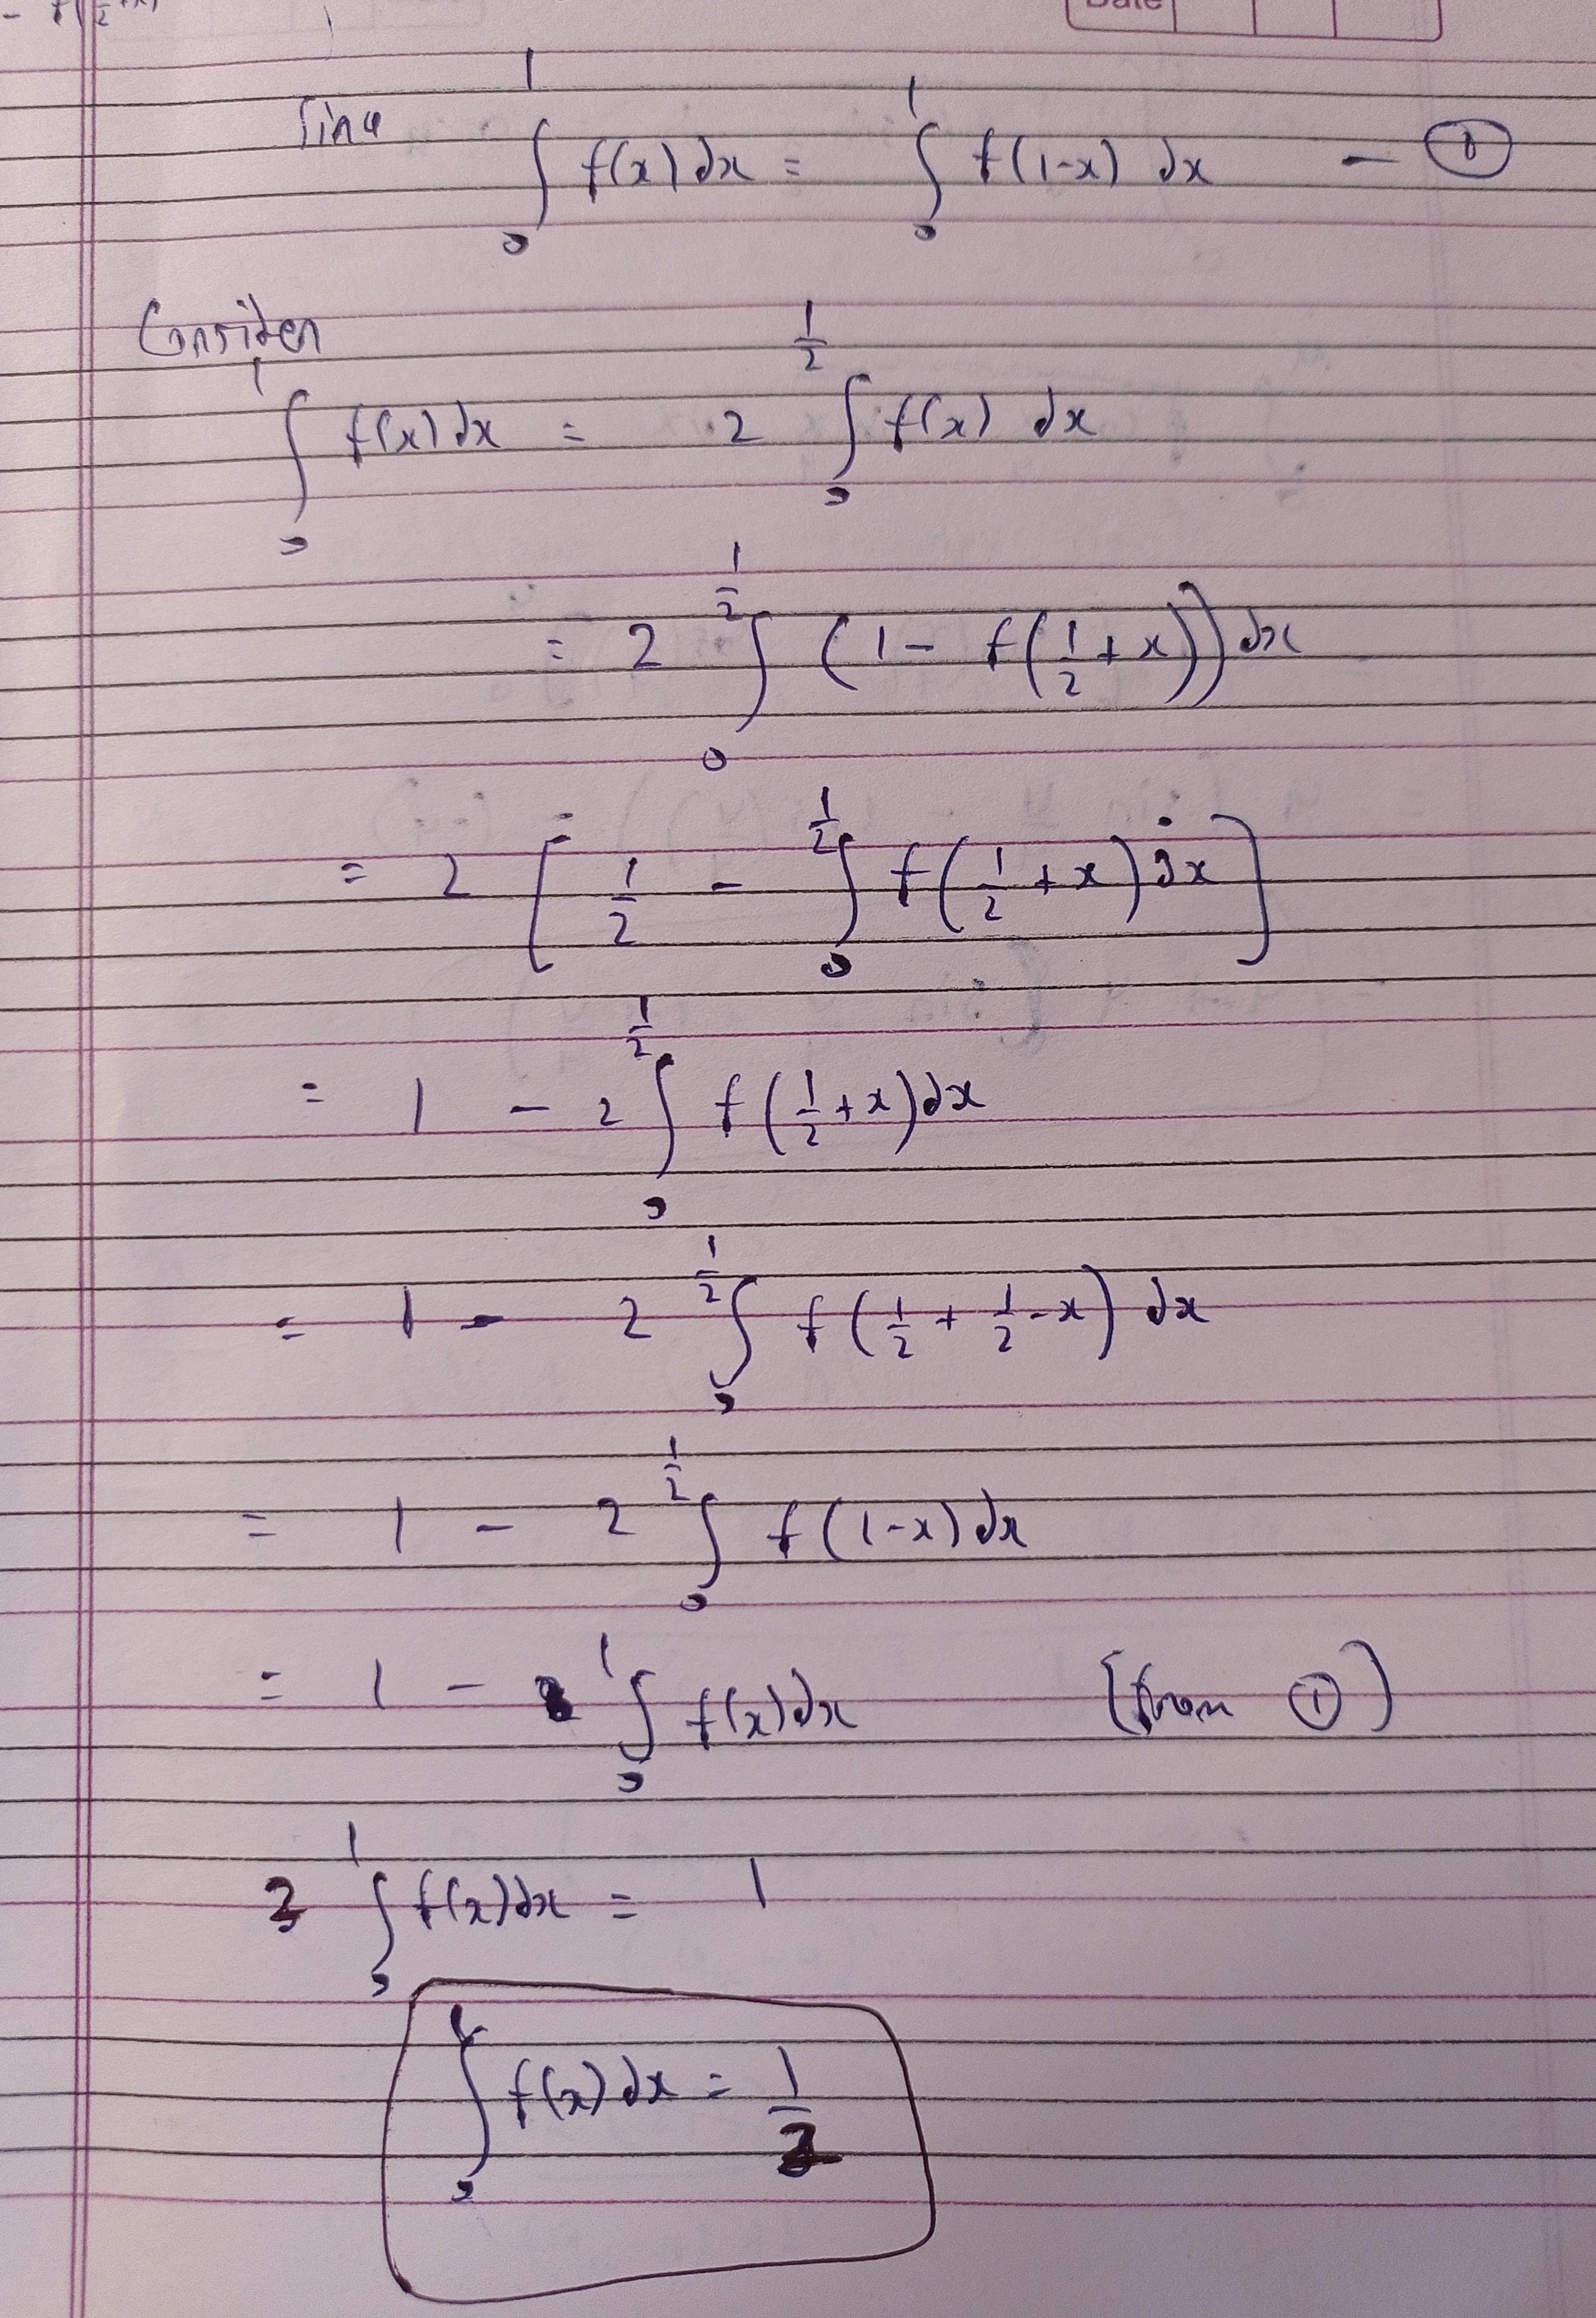 Date
Since ∫₀¹ f(x) dx = ∫₀¹ f(1-x) dx — ①
Consider
∫₀¹ f(x) dx = 2 ∫₀^(1/2) f(x) dx
= 2 ∫₀^(1/2) (1 - f(1/2 + x)) dx
= 2 [ 1/2 - ∫₀^(1/2) f(1/2 + x) dx ]
= 1 - 2 ∫₀^(1/2) f(1/2 + x) dx
= 1 - 2 ∫₀^(1/2) f(1/2 + 1/2 - x) dx
= 1 - 2 ∫₀^(1/2) f(1-x) dx
= 1 - ∫₀¹ f(x) dx (from ①)
2 ∫₀¹ f(x) dx = 1
∫₀¹ f(x) dx = 1/2